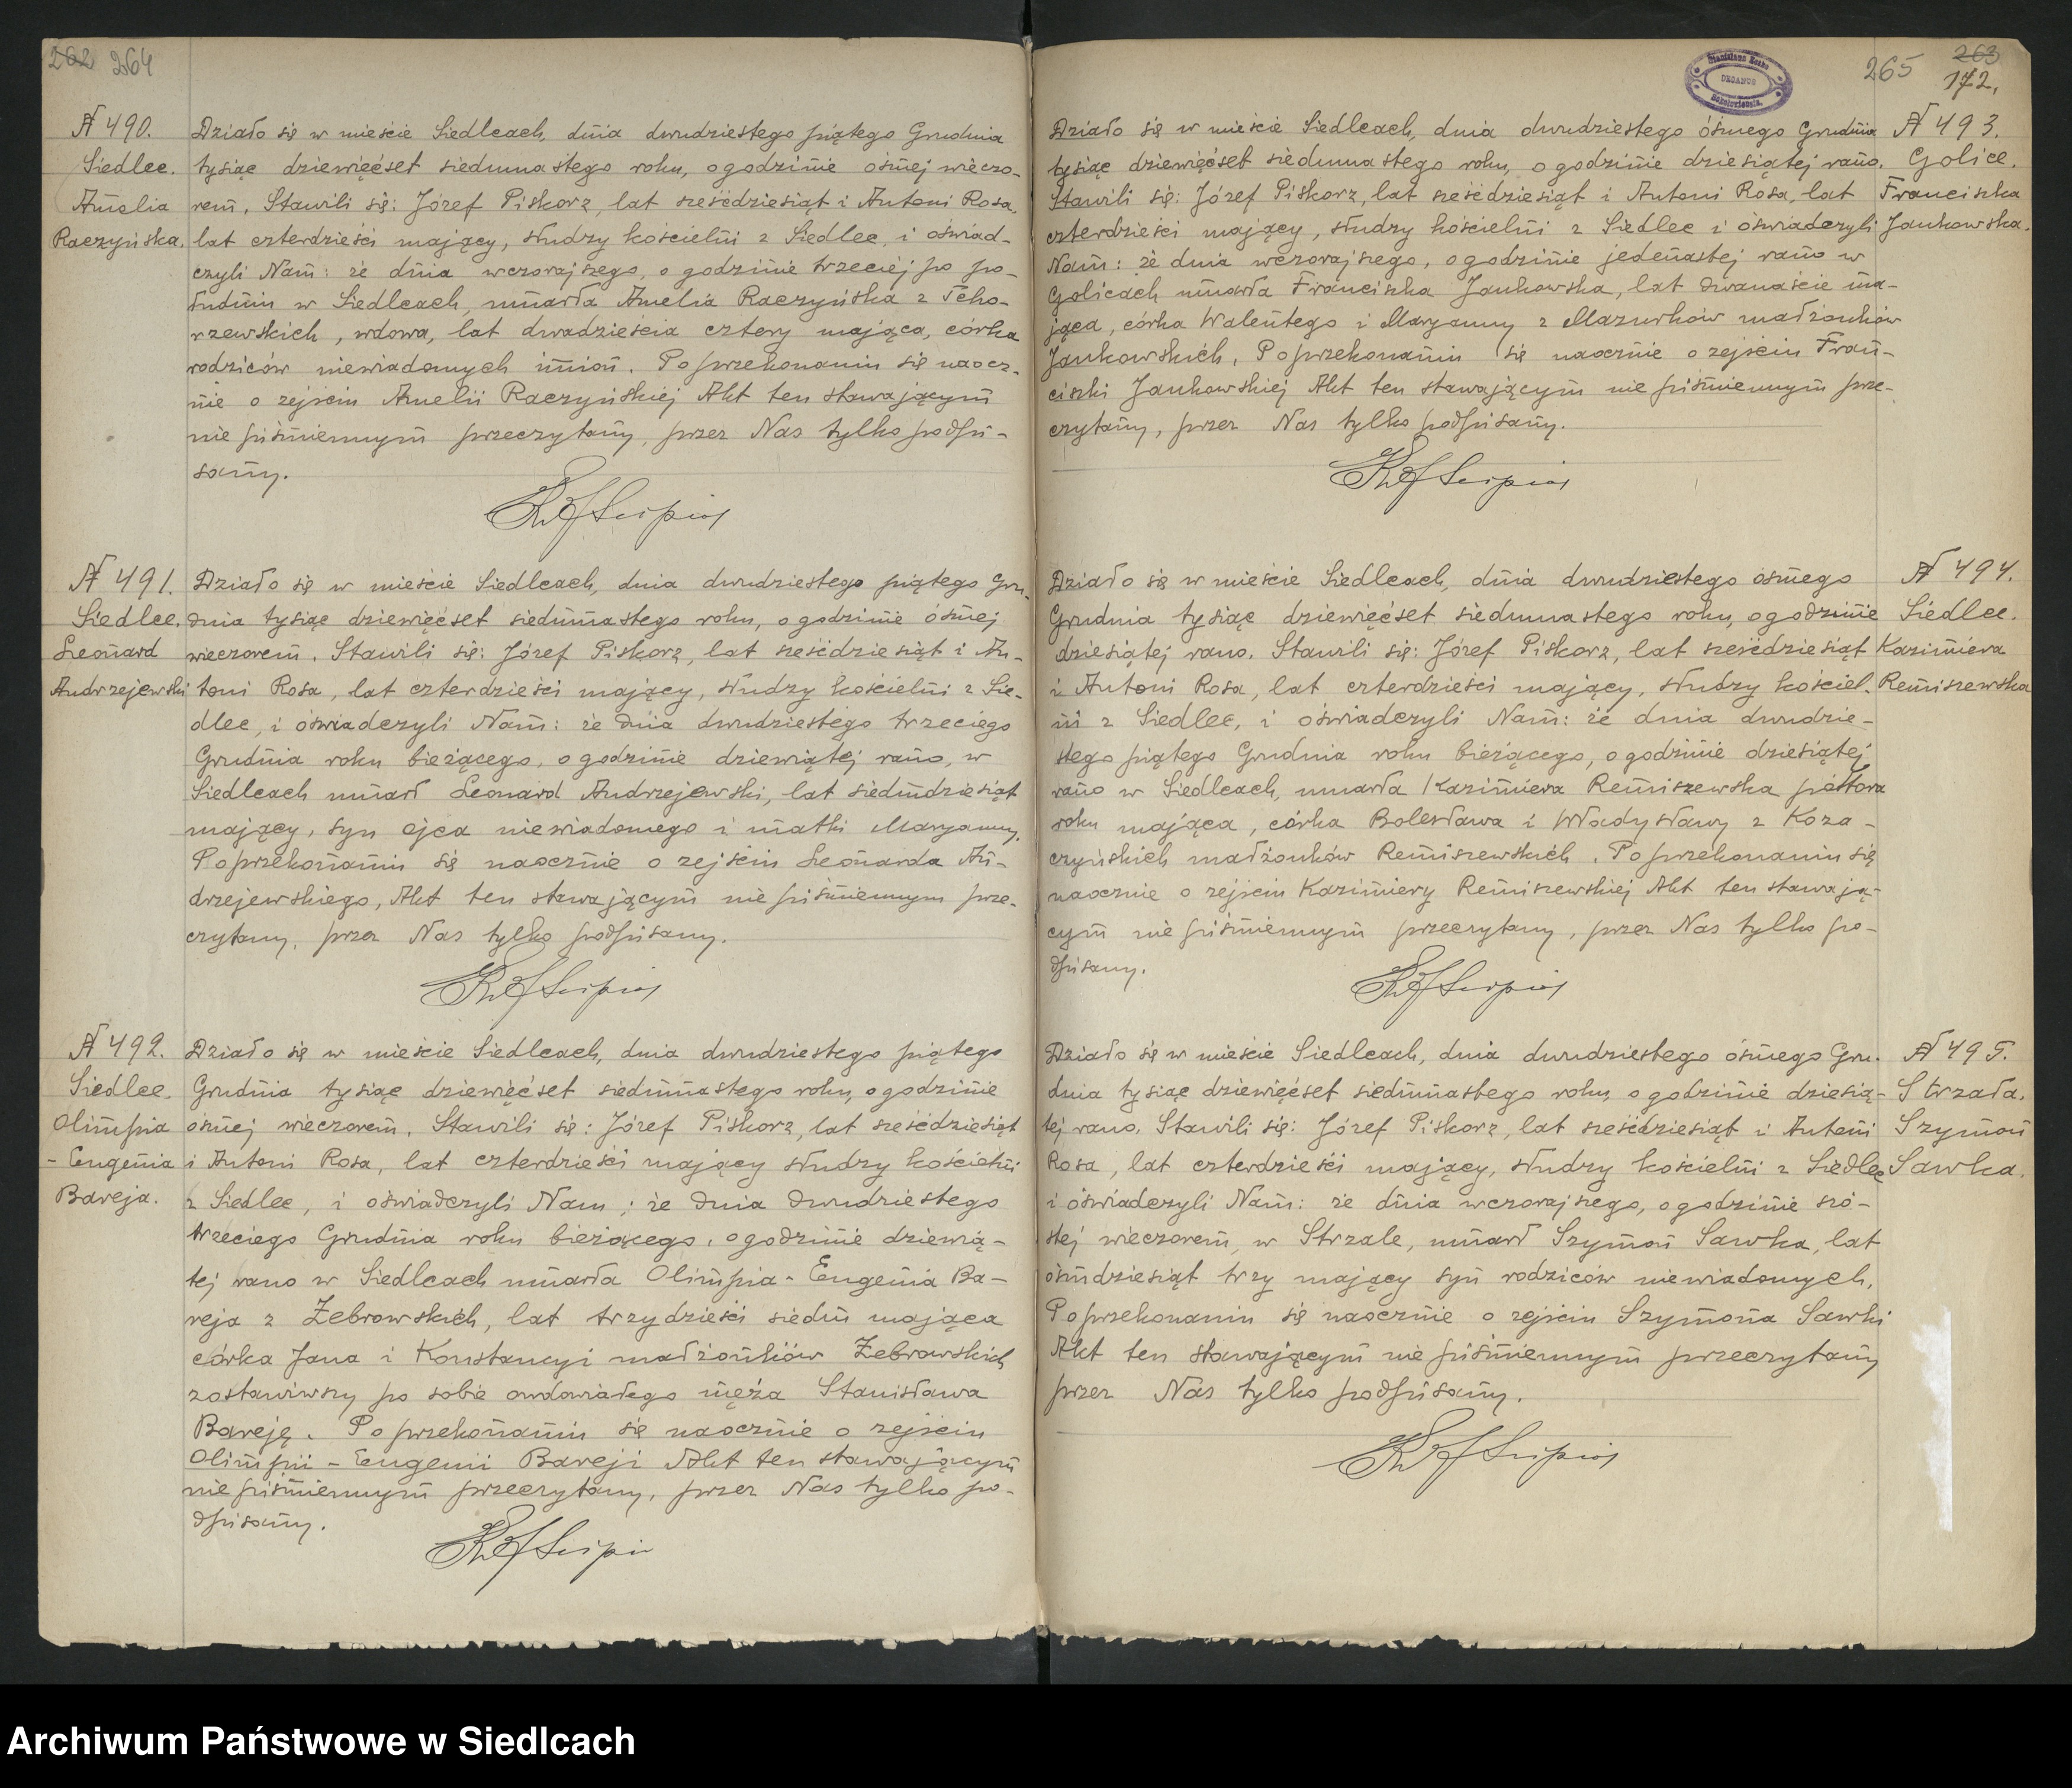 202 264
№ 490.
Siedlce.
Amelia
Raczyńska.
Działo się w mieście Siedlcach, dnia dwudziestego piątego Grudnia
tysiąc dziewięćset siedmnastego roku, o godzinie ósmej wieczo-
rem. Stawili się: Józef Piskorz, lat sześćdziesiąt i Antoni Rosa,
lat czterdzieści mający, słudzy kościelni z Siedlec, i oświad-
czyli Nam: że dnia wczorajszego, o godzinie trzeciej po po-
łudniu w Siedlcach, umarła Amelia Raczyńska z Tcho-
rzewskich, wdowa, lat dwadzieścia cztery mająca, córka
rodziców niewiadomych imion. Po przekonaniu się naocz-
nie o zejściu Amelii Raczyńskiej Akt ten stawającym
nie piśmiennym przeczytany, przez Nas tylko podpi-
sany.
№ 491.
Siedlce.
Leonard
Andrzejewski
Działo się w mieście Siedlcach, dnia dwudziestego piątego Gru-
dnia tysiąc dziewięćset siedmnastego roku, o godzinie ósmej
wieczorem. Stawili się: Józef Piskorz, lat sześćdziesiąt i An-
toni Rosa, lat czterdzieści mający, słudzy kościelni z Sie-
dlec, i oświadczyli Nam: że dnia dwudziestego trzeciego
Grudnia roku bieżącego, o godzinie dziewiątej rano, w
Siedlcach umarł Leonard Andrzejewski, lat siedmdziesiąt
mający, syn ojca niewiadomego i matki Maryanny.
Po przekonaniu się naocznie o zejściu Leonarda An-
drzejewskiego, Akt ten stawającym nie piśmiennym prze-
czytany, przez Nas tylko podpisany.
№ 492.
Siedlce.
Olimpia
- Eugenia
Bareja.
Działo się w mieście Siedlcach, dnia dwudziestego piątego
Grudnia tysiąc dziewięćset siedmnastego roku, o godzinie
ósmej wieczorem. Stawili się: Józef Piskorz, lat sześćdziesiąt
i Antoni Rosa, lat czterdzieści mający słudzy kościelni
z Siedlec, i oświadczyli Nam; że dnia dwudziestego
trzeciego Grudnia roku bieżącego, o godzinie dziewią-
tej rano w Siedlcach umarła Olimpia - Eugenia Ba-
reja z Żebrowskich, lat trzydzieści siedm mająca
córka Jana i Konstancyi małżonków Żebrowskich
zostawiwszy po sobie owdowiałego męża Stanisława
Bareję. Po przekonaniu się naocznie o zejściu
Olimpii - Eugenii Bareji Akt ten stawającym
nie piśmiennym przeczytany, przez Nas tylko po-
dpisany.
265 263
172.
№ 493.
Golice.
Franciszka
Jankowska.
Działo się w mieście Siedlcach, dnia dwudziestego ósmego Grudnia
tysiąc dziewięćset siedmnastego roku, o godzinie dziesiątej rano.
Stawili się: Józef Piskorz, lat sześćdziesiąt i Antoni Rosa, lat
czterdzieści mający, słudzy kościelni z Siedlec i oświadczyli
Nam: że dnia wczorajszego, o godzinie jedenastej rano w
Golicach umarła Franciszka Jankowska, lat dwanaście ma-
jąca, córka Walentego i Maryanny z Mazurków małżonków
Jankowskich. Po przekonaniu się naocznie o zejściu Fran-
ciszki Jankowskiej Akt ten stawającym nie piśmiennym prze-
czytany, przez Nas tylko podpisany.
№ 494.
Siedlce.
Kazimiera
Remiszewska
Działo się w mieście Siedlcach, dnia dwudziestego ósmego
Grudnia tysiąc dziewięćset siedmnastego roku, o godzinie
dziesiątej rano. Stawili się: Józef Piskorz, lat sześćdziesiąt
i Antoni Rosa, lat czterdzieści mający, słudzy kościel-
ni z Siedlec, i oświadczyli Nam: że dnia dwudzie-
stego piątego Grudnia roku bieżącego, o godzinie dziesiątej
rano w Siedlcach, umarła Kazimiera Remiszewska półtora
roku mająca, córka Bolesława i Władysławy z Koza-
czyńskich małżonków Remiszewskich. Po przekonaniu się
naocznie o zejściu Kazimiery Remiszewskiej Akt ten stawają-
cym nie piśmiennym przeczytany, przez Nas tylko po-
dpisany.
№ 495.
Strzała.
Szymon
Sawka.
Działo się w mieście Siedlcach, dnia dwudziestego ósmego Gru-
dnia tysiąc dziewięćset siedmnastego roku, o godzinie dziesią-
tej rano. Stawili się: Józef Piskorz, lat sześćdziesiąt i Antoni
Rosa, lat czterdzieści mający, słudzy kościelni z Siedlec
i oświadczyli Nam: że dnia wczorajszego, o godzinie szó-
stej wieczorem, w Strzale, umarł Szymon Sawka, lat
ośmdziesiąt trzy mający syn rodziców niewiadomych.
Po przekonaniu się naocznie o zejściu Szymona Sawki
Akt ten stawającym nie piśmiennym przeczytany
przez Nas tylko podpisany.
Archiwum Państwowe w Siedlcach